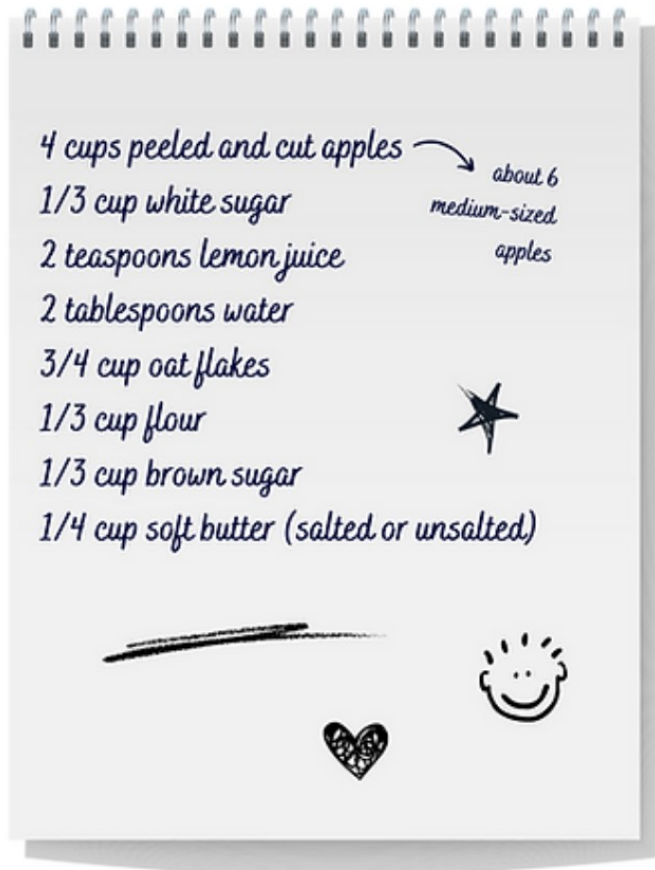 4 cups peeled and cut apples
about 6
medium-sized
apples
1/3 cup white sugar
2 teaspoons lemon juice
2 tablespoons water
3/4 cup oat flakes
1/3 cup flour
1/3 cup brown sugar
1/4 cup soft butter (salted or unsalted)